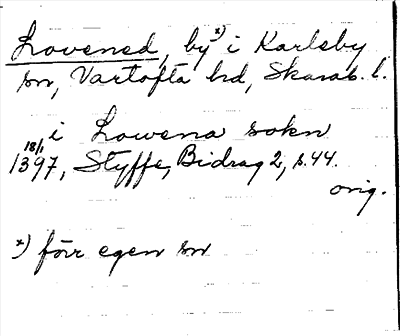 Lovened, by x) i Karlsby
sn, Vartofta hd, Skarab. l.
i Lowena sokn
18/1 1397, Styffe, Bidrag 2, s. 44.
orig.
x) förr egen sn